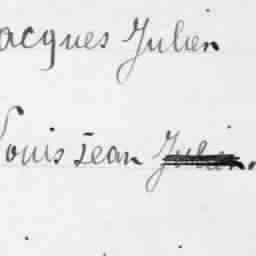 acques Julien
Louis Jean Julien.